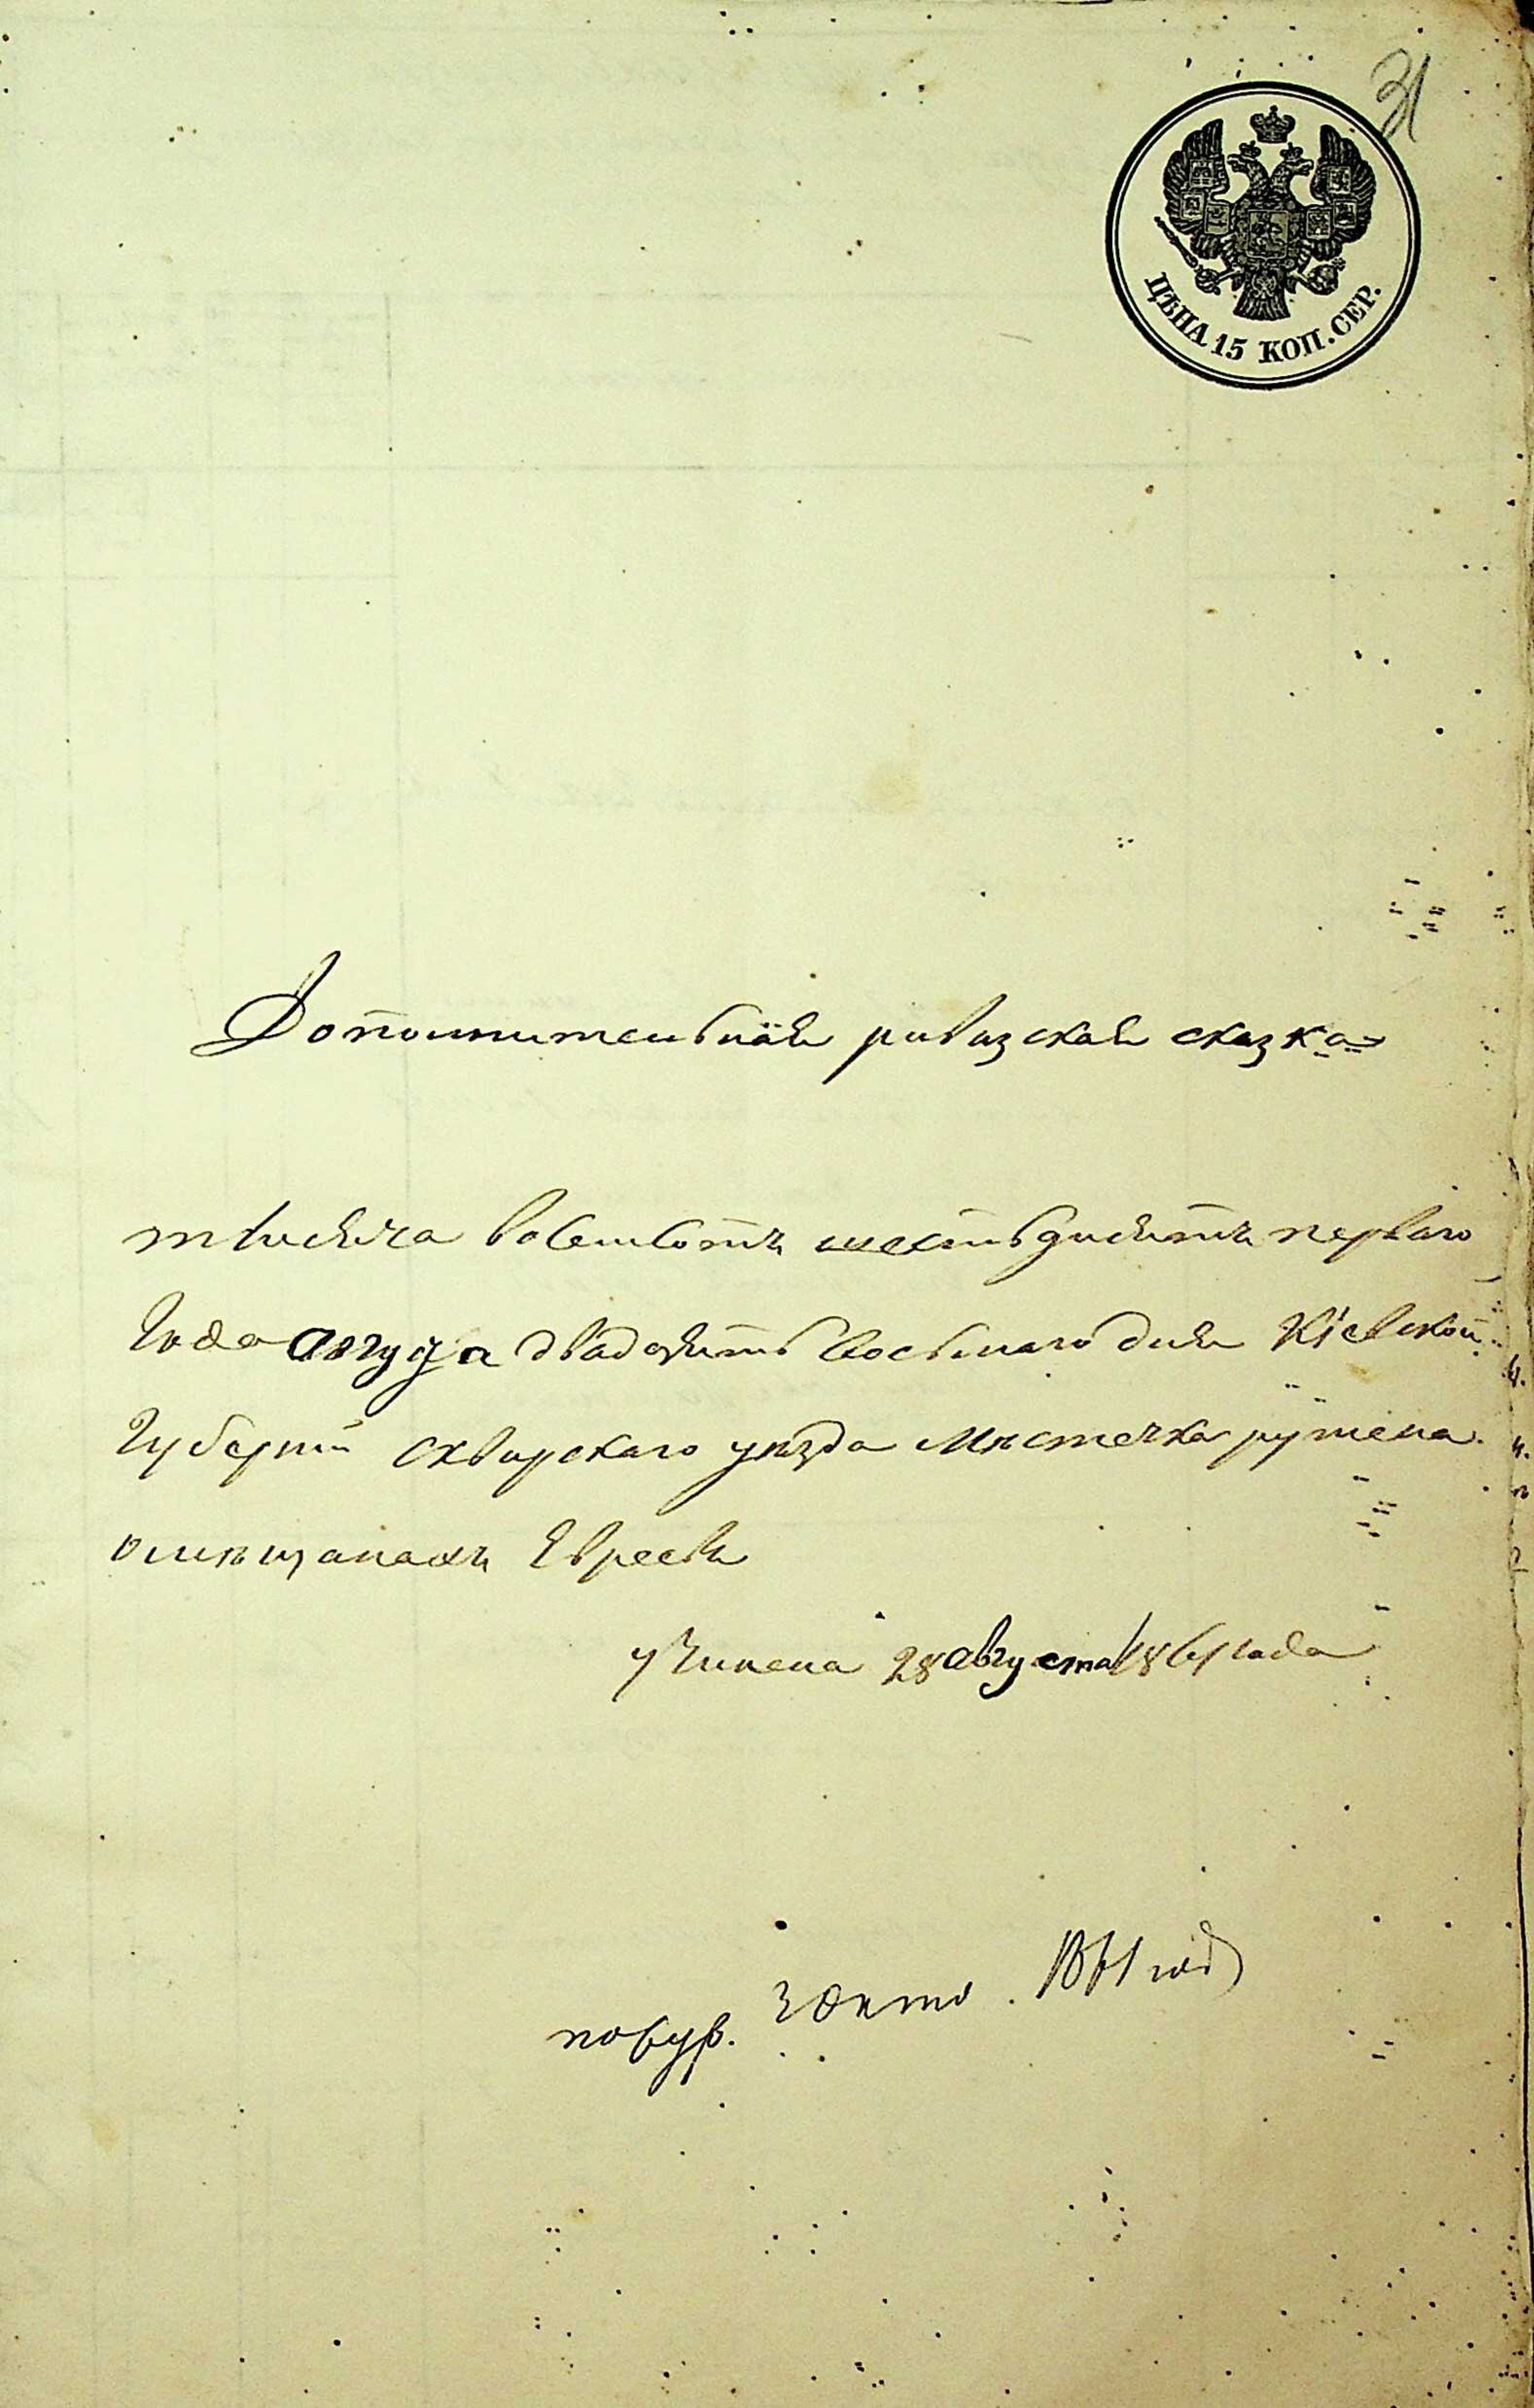 31
ЦѢНА 15 КОП. СЕР.
Дополнительная ривизская сказка
тысяча восемьсотъ шестьдисятъ перваго
Года августа двадцять восьмаго дня Кіевской
Губерніи сквирскаго уѣзда мѣстечка ружена
омѣщанахъ Евреевъ
учинена 28 августа 1861 года
1861 год